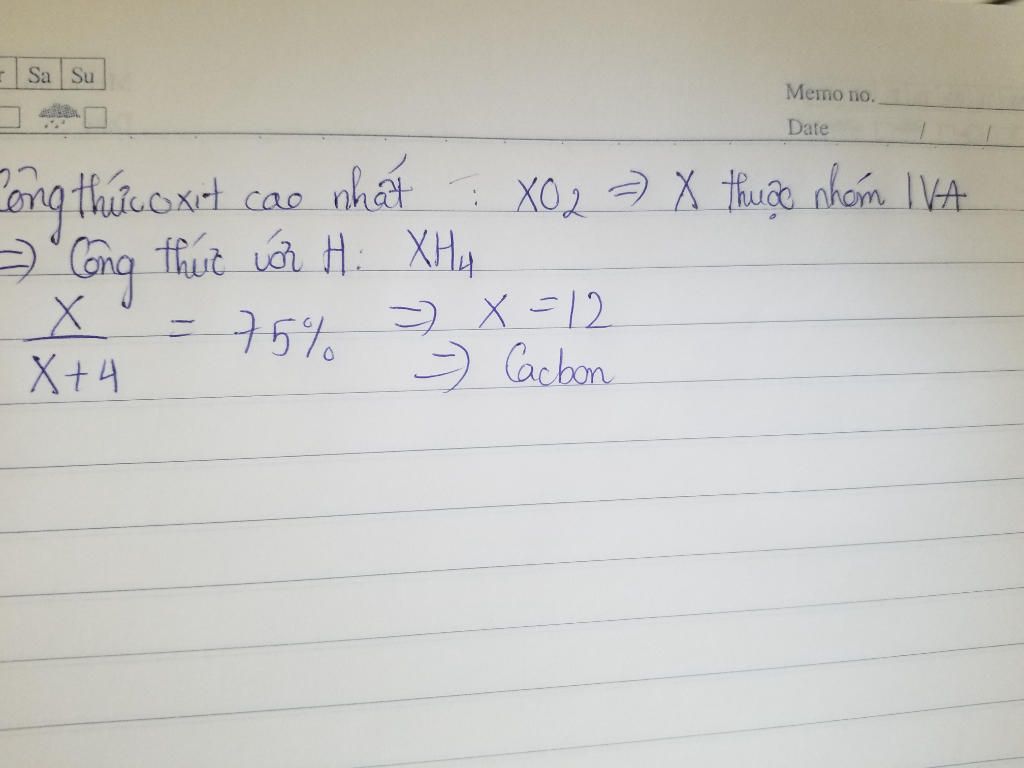 r Sa Su
Memo no.
Date / /
Công thức oxit cao nhất : XO2 => X thuộc nhóm IVA
=> Công thức với H: XH4
X / X+4 = 75% => X = 12
=> Cacbon